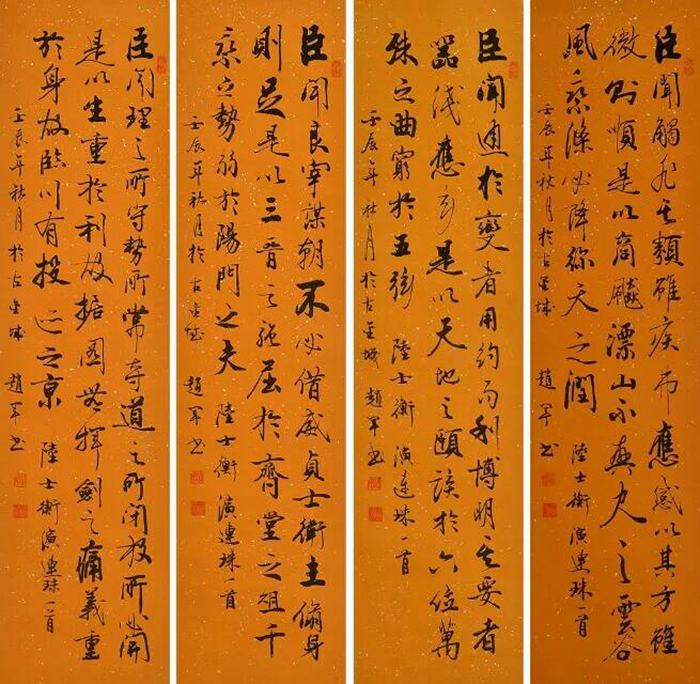 臣聞觸非其類雖疾弗應感以其方雖
微則順是以商飈漂山不興盈尺之雲谷
風乘條必降弥天之潤 陸士衡演連珠一首
壬辰年秋月於古金城 趙軍书
臣聞通於變者用約而利博明其要者
器淺應玄是以天地之頤該於六位萬
殊之曲窮於五絃 陸士衡演連珠一首
壬辰年秋月於古金城 趙軍书
臣聞良宰謀朝不必借威貞士衛主脩身
則足是以三晉之強屈於齊堂之俎千
乘之勢弱於陽門之夫 陸士衡演連珠一首
壬辰年秋月於古金城 趙軍书
臣聞理之所守勢所常奪道之所閉權所必開
是以生重於利故据圖無揮劍之痛義重
於身故臨川有投迹之哀 陸士衡演連珠一首
壬辰年秋月於古金城 趙軍书